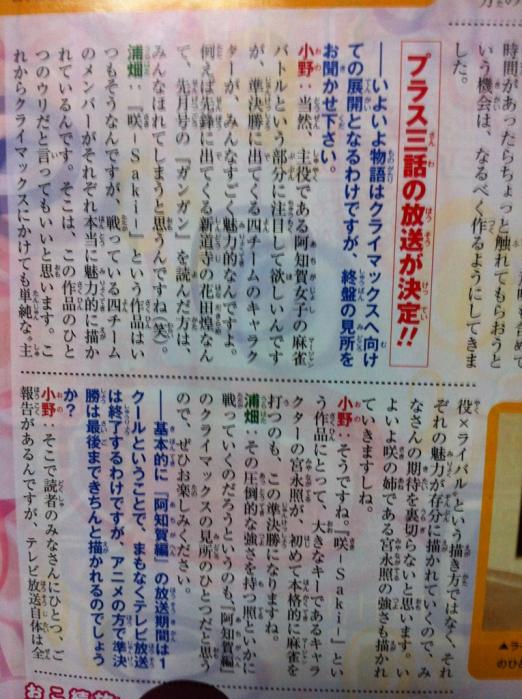 時間があったらちょっと触れてもらおうと
いう機会は、なるべく作るようにしてきま
した。
プラス三話の放送が決定!!
――いよいよ物語はクライマックスへ向け
ての展開となるわけですが、終盤の見所を
お聞かせ下さい。
小野：当然、主役である阿知賀女子の麻雀
バトルという部分に注目して欲しいんです
が、準決勝に出てくる四チームのキャラク
ターが、みんなすごく魅力的なんですよ。
例えば先鋒に出てくる新道寺の花田煌なん
て、先月号の『ガンガン』を読んだ方は、
みんなほれてしまうと思うんですね（笑）。
浦畑：『咲－Saki－』という作品はい
つもそうなんですが、戦っている四チーム
のメンバーがそれぞれ本当に魅力的に描か
れているんです。そこは、この作品のひと
つのウリだと言ってもいいと思います。こ
れからクライマックスにかけても単純な〝主
役×ライバル〟という描き方ではなく、それ
ぞれの魅力が存分に描かれていくので、み
なさんの期待を裏切らないと思います。い
よいよ咲の姉である宮永照の強さも描かれ
ていきますしね。
小野：そうですね。『咲－Saki－』とい
う作品にとって、大きなキーであるキャラ
クターの宮永照が、初めて本格的に麻雀を
打つのも、この準決勝になりますね。
浦畑：その圧倒的な強さを持つ照といかに
戦っていくのだろうというのも、『阿知賀編』
のクライマックスの見所のひとつだと思う
ので、ぜひお楽しみください。
――基本的に『阿知賀編』の放送期間は１
クールということで、まもなくテレビ放送
は終了するわけですが、アニメの方で準決
勝は最後まできちんと描かれるのでしょう
か？
小野：そこで読者のみなさんにひとつ、ご
報告があるんですが、テレビ放送自体は全
▲ラ
のひ